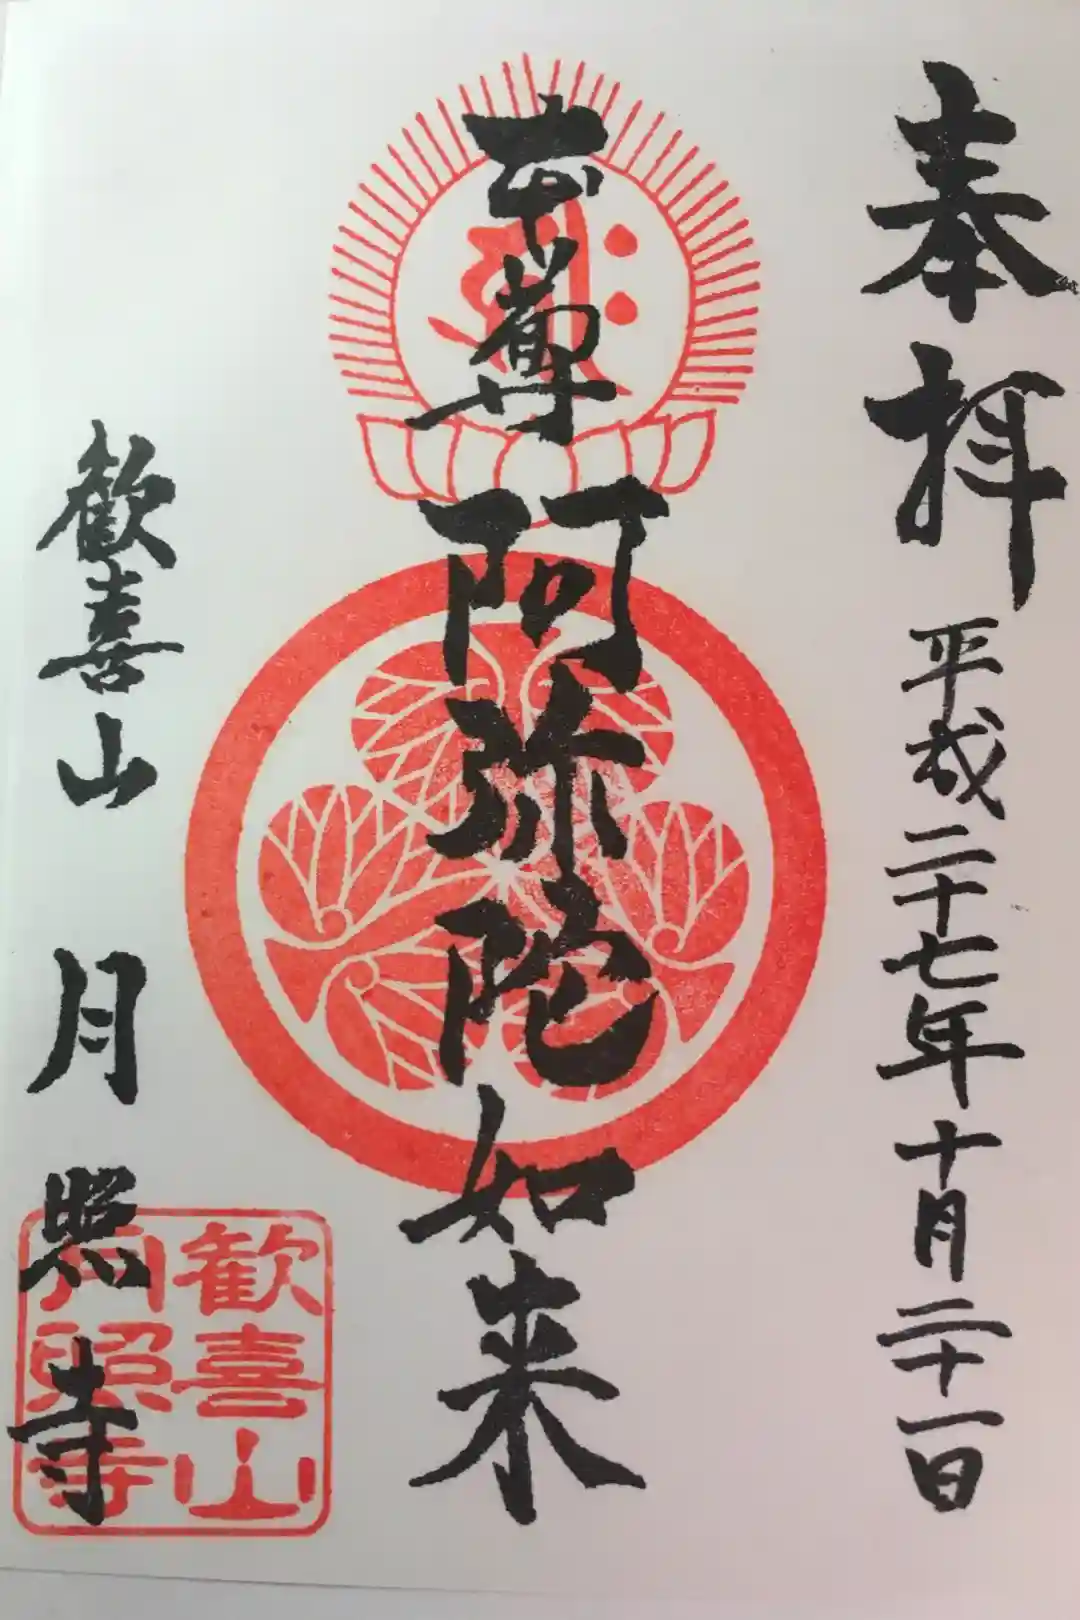 奉拝 平成二十七年十月二十一日
本尊 阿弥陀如来
歓喜山 月照寺
歓喜山
月照寺